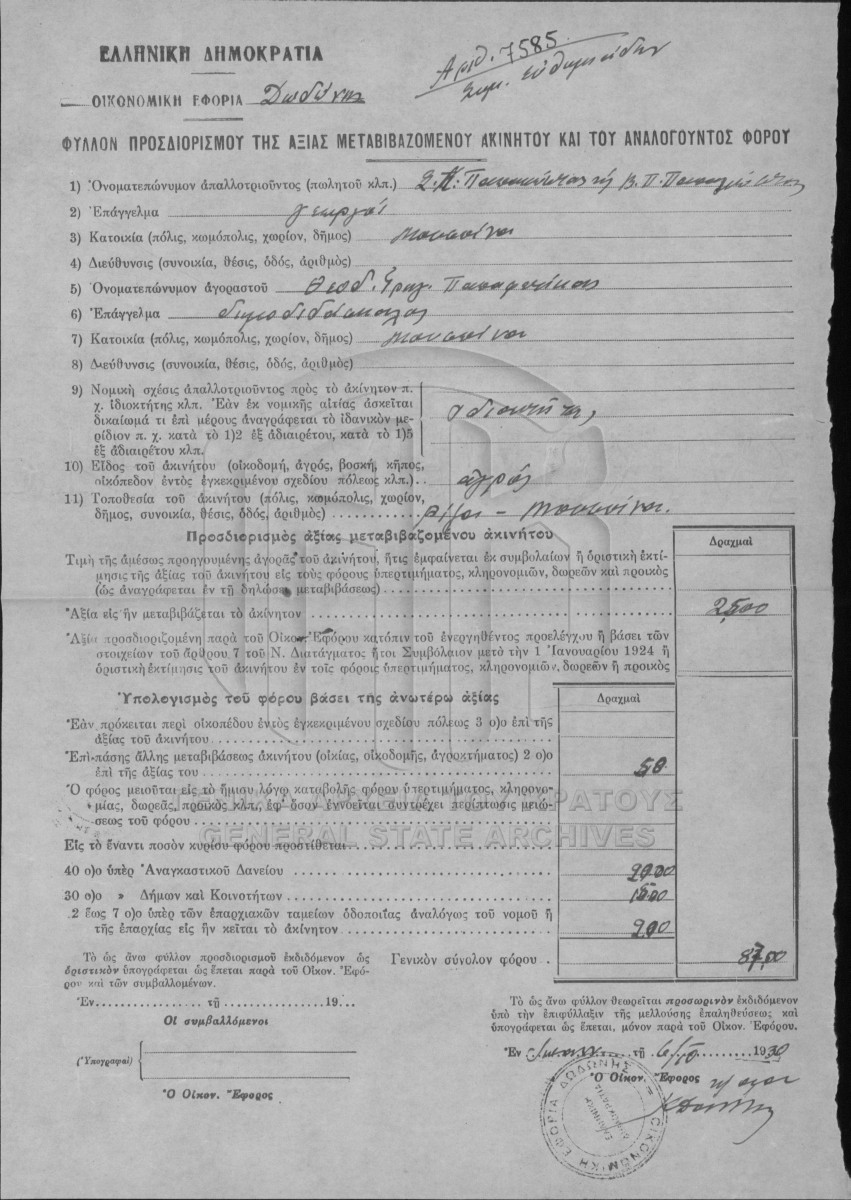 ΕΛΛΗΝΙΚΗ ΔΗΜΟΚΡΑΤΙΑ
Αριθ. 7585
ΟΙΚΟΝΟΜΙΚΗ ΕΦΟΡΙΑ Δωδώνης
ΦΥΛΛΟΝ ΠΡΟΣΔΙΟΡΙΣΜΟΥ ΤΗΣ ΑΞΙΑΣ ΜΕΤΑΒΙΒΑΖΟΜΕΝΟΥ ΑΚΙΝΗΤΟΥ ΚΑΙ ΤΟΥ ΑΝΑΛΟΓΟΥΝΤΟΣ ΦΟΡΟΥ
1) Ὀνοματεπώνυμον ἀπαλλοτριοῦντος (πωλητοῦ κλπ.)
2) Ἐπάγγελμα γεωργοί
3) Κατοικία (πόλις, κωμόπολις, χωρίον, δῆμος)
4) Διεύθυνσις (συνοικία, θέσις, ὁδός, ἀριθμὸς)
5) Ὀνοματεπώνυμον ἀγοραστοῦ Θεοδ. Γρηγ.
6) Ἐπάγγελμα δημοδιδάσκαλος
7) Κατοικία (πόλις, κωμόπολις, χωρίον, δῆμος)
8) Διεύθυνσις (συνοικία, θέσις, ὁδός, ἀριθμὸς)
9) Νομικὴ σχέσις ἀπαλλοτριοῦντος πρὸς τὸ ἀκίνητον π.
χ. ἰδιοκτήτης κλπ. Ἐὰν ἐκ νομικῆς αἰτίας ἀσκεῖται
δικαίωμά τι ἐπὶ μέρους ἀναγράφεται τὸ ἰδανικὸν με-
ρίδιον π. χ. κατὰ τὸ 1)2 ἐξ ἀδιαιρέτου, κατὰ τὸ 1)5
ἐξ ἀδιαιρέτου κλπ.
ἰδιοκτήτης
10) Εἶδος τοῦ ἀκινήτου (οἰκοδομή, ἀγρός, βοσκή, κῆπος,
οἰκόπεδον ἐντὸς ἐγκεκριμένου σχεδίου πόλεως κλπ.) ἀγρός
11) Τοποθεσία τοῦ ἀκινήτου (πόλις, κωμόπολις, χωρίον,
δῆμος, συνοικία, θέσις, ὁδός, ἀριθμὸς)
Προσδιορισμὸς ἀξίας μεταβιβαζομένου ἀκινήτου
Δραχμαὶ
Τιμὴ τῆς ἀμέσως προηγουμένης ἀγορᾶς τοῦ ἀκινήτου, ἥτις ἐμφαίνεται ἐκ συμβολαίων ἢ ὁριστικὴ ἐκτί-
μησις τῆς ἀξίας τοῦ ἀκινήτου εἰς τοὺς φόρους ὑπερτιμήματος, κληρονομιῶν, δωρεῶν καὶ προικὸς
(ὡς ἀναγράφεται ἐν τῇ δηλώσει μεταβιβάσεως)
Ἀξία εἰς ἣν μεταβιβάζεται τὸ ἀκίνητον 2500
Ἀξία προσδιοριζομένη παρὰ τοῦ Οἰκον. Ἐφόρου κατόπιν τοῦ ἐνεργηθέντος προελέγχου ἢ βάσει τῶν
στοιχείων τοῦ ἄρθρου 7 τοῦ Ν. Διατάγματος ἤτοι Συμβόλαιον μετὰ τὴν 1 Ἰανουαρίου 1924 ἢ
ὁριστικὴ ἐκτίμησις τοῦ ἀκινήτου ἐν τοῖς φόροις ὑπερτιμήματος, κληρονομιῶν, δωρεῶν ἢ προικὸς
Ὑπολογισμὸς τοῦ φόρου βάσει τῆς ἀνωτέρω ἀξίας
Δραχμαὶ
Ἐὰν πρόκειται περὶ οἰκοπέδου ἐντὸς ἐγκεκριμένου σχεδίου πόλεως 3 ο)ο ἐπὶ τῆς
ἀξίας τοῦ ἀκινήτου
Ἐπὶ πάσης ἄλλης μεταβιβάσεως ἀκινήτου (οἰκίας, οἰκοδομῆς, ἀγροκτήματος) 2 ο)ο
ἐπὶ τῆς ἀξίας του 50
Ὁ φόρος μειοῦται εἰς τὸ ἥμισυ λόγῳ καταβολῆς φόρου ὑπερτιμήματος, κληρονο-
μίας, δωρεᾶς, προικὸς κλπ., ἐφ' ὅσον ἐννοεῖται συντρέχει περίπτωσις μειώ-
σεως τοῦ φόρου
GENERAL STATE ARCHIVES
Εἰς τὸ ἔναντι ποσὸν κυρίου φόρου προστίθεται
40 ο)ο ὑπὲρ Ἀναγκαστικοῦ Δανείου 20.00
30 ο)ο » Δήμων καὶ Κοινοτήτων 15.00
2 ἕως 7 ο)ο ὑπὲρ τῶν ἐπαρχιακῶν ταμείων ὁδοποιΐας ἀναλόγως τοῦ νομοῦ ἢ
τῆς ἐπαρχίας εἰς ἣν κεῖται τὸ ἀκίνητον
Γενικὸν σύνολον φόρου 87,00
Τὸ ὡς ἄνω φύλλον προσδιορισμοῦ ἐκδιδόμενον ὡς
ὁριστικὸν ὑπογράφεται ὡς ἕπεται παρὰ τοῦ Οἰκον. Ἐφό-
ρου καὶ τῶν συμβαλλομένων.
Ἐν τῇ 19
Οἱ συμβαλλόμενοι
(Ὑπογραφαὶ)
Ὁ Οἰκον. Ἔφορος
Τὸ ὡς ἄνω φύλλον θεωρεῖται προσωρινὸν ἐκδιδόμενον
ὑπὸ τὴν ἐπιφύλαξιν τῆς μελλούσης ἐπαληθεύσεως καὶ
ὑπογράφεται ὡς ἕπεται, μόνον παρὰ τοῦ Οἰκον. Ἐφόρου.
Ἐν τῇ 6/10 1930
Ὁ Οἰκον. Ἔφορος
ΟΙΚΟΝΟΜΙΚΗ ΕΦΟΡΙΑ ΔΩΔΩΝΗΣ
ΕΛΛΗΝΙΚΗ ΔΗΜΟΚΡΑΤΙΑ